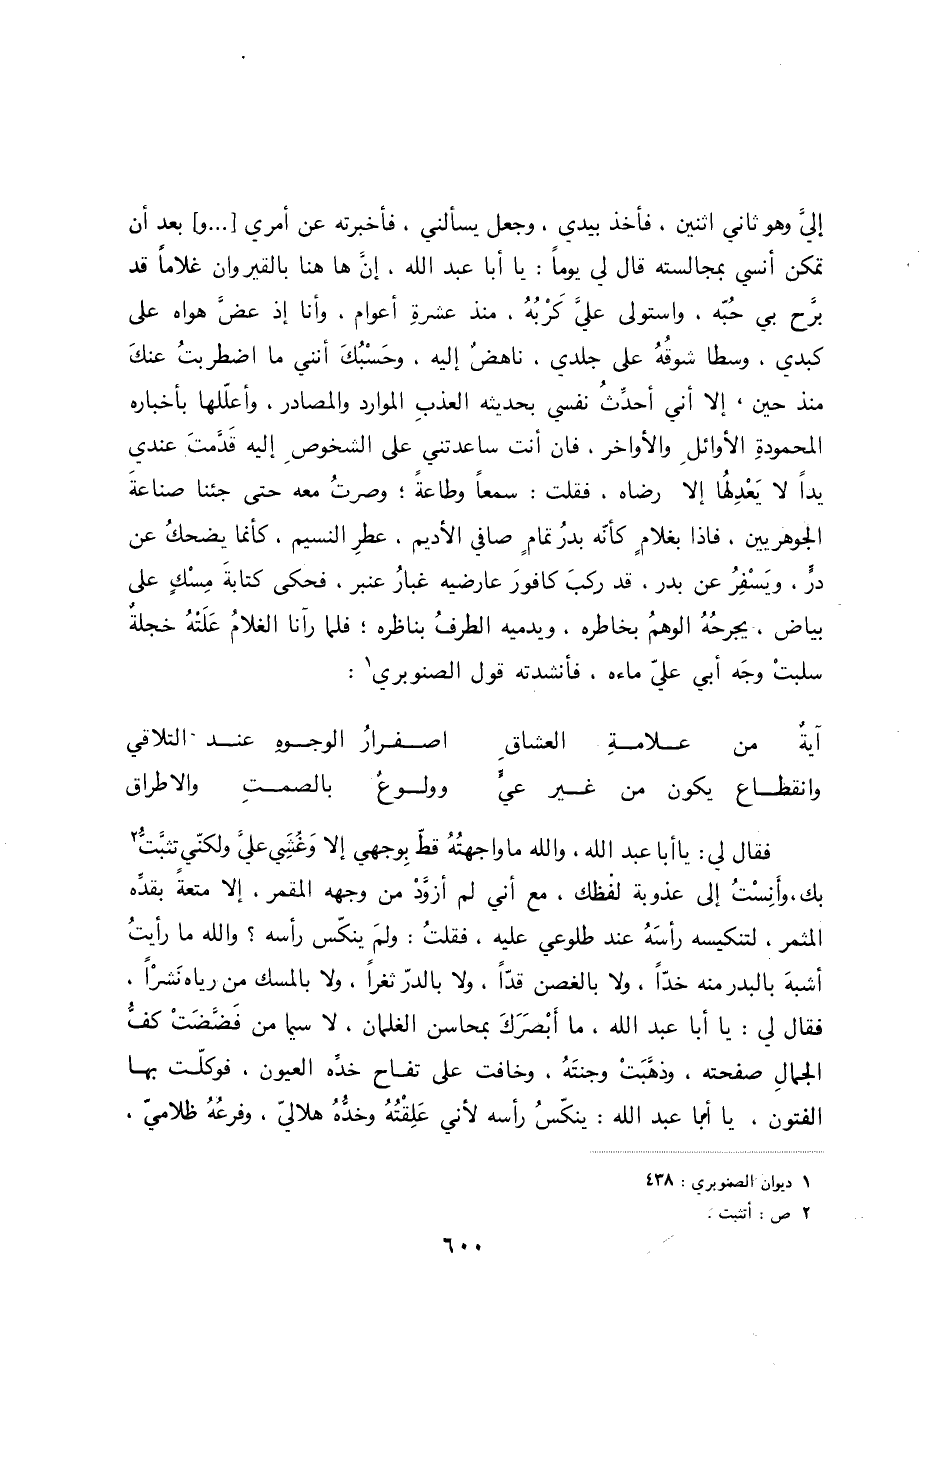 إليَّ وهو ثاني اثنين ، فأخذ بيدي ، وجعل يسألني ، فأخبرته عن أمري [...و] بعد أن
تمكن أنسي بمجالسته قال لي يوماً : يا أبا عبد الله ، إنَّ ها هنا بالقيروان غلاماً قد
برَّح بي حُبّه ، واستولى عليَّ كَرْبُهُ ، منذ عشرةِ أعوام ، وأنا إذ عضَّ هواه على
كبدي ، وسطا شوقُهُ على جلدي ، ناهضٌ إليه ، وحَسْبُكَ أنني ما اضطربتُ عنكَ
منذ حين ، إلا أني أحدِّثُ نفسي بحديثه العذبِ الموارد والمصادر ، وأعلّلها بأخباره
المحمودةِ الأوائلِ والأواخر ، فان أنت ساعدتني على الشخوصِ إليه قَدَّمتَ عندي
يداً لا يَعْدِلُها إلا رضاه ، فقلت : سمعاً وطاعةً ؛ وصرتُ معه حتى جئنا صناعةَ
الجوهريين ، فاذا بغلامٍ كأنّه بدرُ تمامٍ صافي الأديم ، عطرِ النسيم ، كأنما يضحكُ عن
درٍّ ، ويَسْفِرُ عن بدر ، قد ركبَ كافورَ عارضيه غبارُ عنبر ، فحكى كتابةَ مِسْكٍ على
بياض ، يجرحُهُ الوهمُ بخاطره ، ويدميه الطرفُ بناظره ؛ فلما رآنا الغلامُ عَلَتْهُ خجلةٌ
سلبتْ وجَه أبي عليّ ماءه ، فأنشدته قول الصنوبري١ :
آيةٌ من علامةِ العشاقِ اصفرارُ الوجوهِ عند التلاقي
وانقطاع يكون من غير عيٍّ وولوعٌ بالصمتِ والاطراق
فقال لي: ياأبا عبد الله ، والله ماواجهتُهُ قطّ بوجهي إلا وَغُشِي عليَّ ولكنّي تثبَّتُّ٢
بك، وأَنِسْتُ إلى عذوبة لفْظك ، مع أني لم أزوَّدْ من وجهه المقمر ، إلا متعةً بقدِّه
المثمر ، لتنكيسه رأسَهُ عند طلوعي عليه ، فقلتُ : ولمَ ينكّس رأسه ؟ والله ما رأيتُ
أشبهَ بالبدر منه خدّاً ، ولا بالغصن قدّاً ، ولا بالدرّ ثغراً ، ولا بالمسك من رياه نَشراً ،
فقال لي : يا أبا عبد الله ، ما أَبْصَرَكَ بمحاسن الغلمان ، لا سيما من فَضَّضَتْ كفُّ
الجمالِ صفحته ، وذهَّبَتْ وجنتَهُ ، وخافت على تفاح خدِّه العيون ، فوكلّت بها
الفتون ، يا أبا عبد الله : ينكّسُ رأسه لأني عَلِقْتُهُ وخدُّهُ هلاليّ ، وفرعُهُ ظلاميّ ،
١ ديوان الصنوبري : ٤٣٨
٢ ص : أتثبت .
٦٠٠